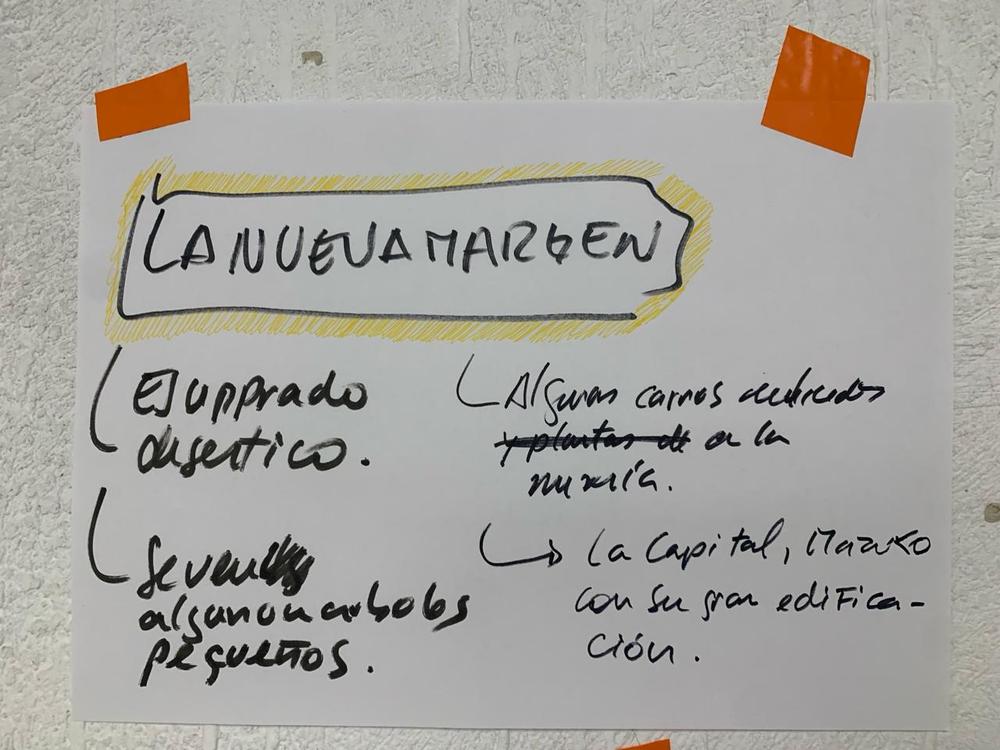 LA NUEVA MARGEN
Es un prado
desertico.
Se ven
algunos arboles
pequeños.
Algunas carros dedicados
a la
minería.
La Capital, Mazuko
con su gran edifica-
ción.